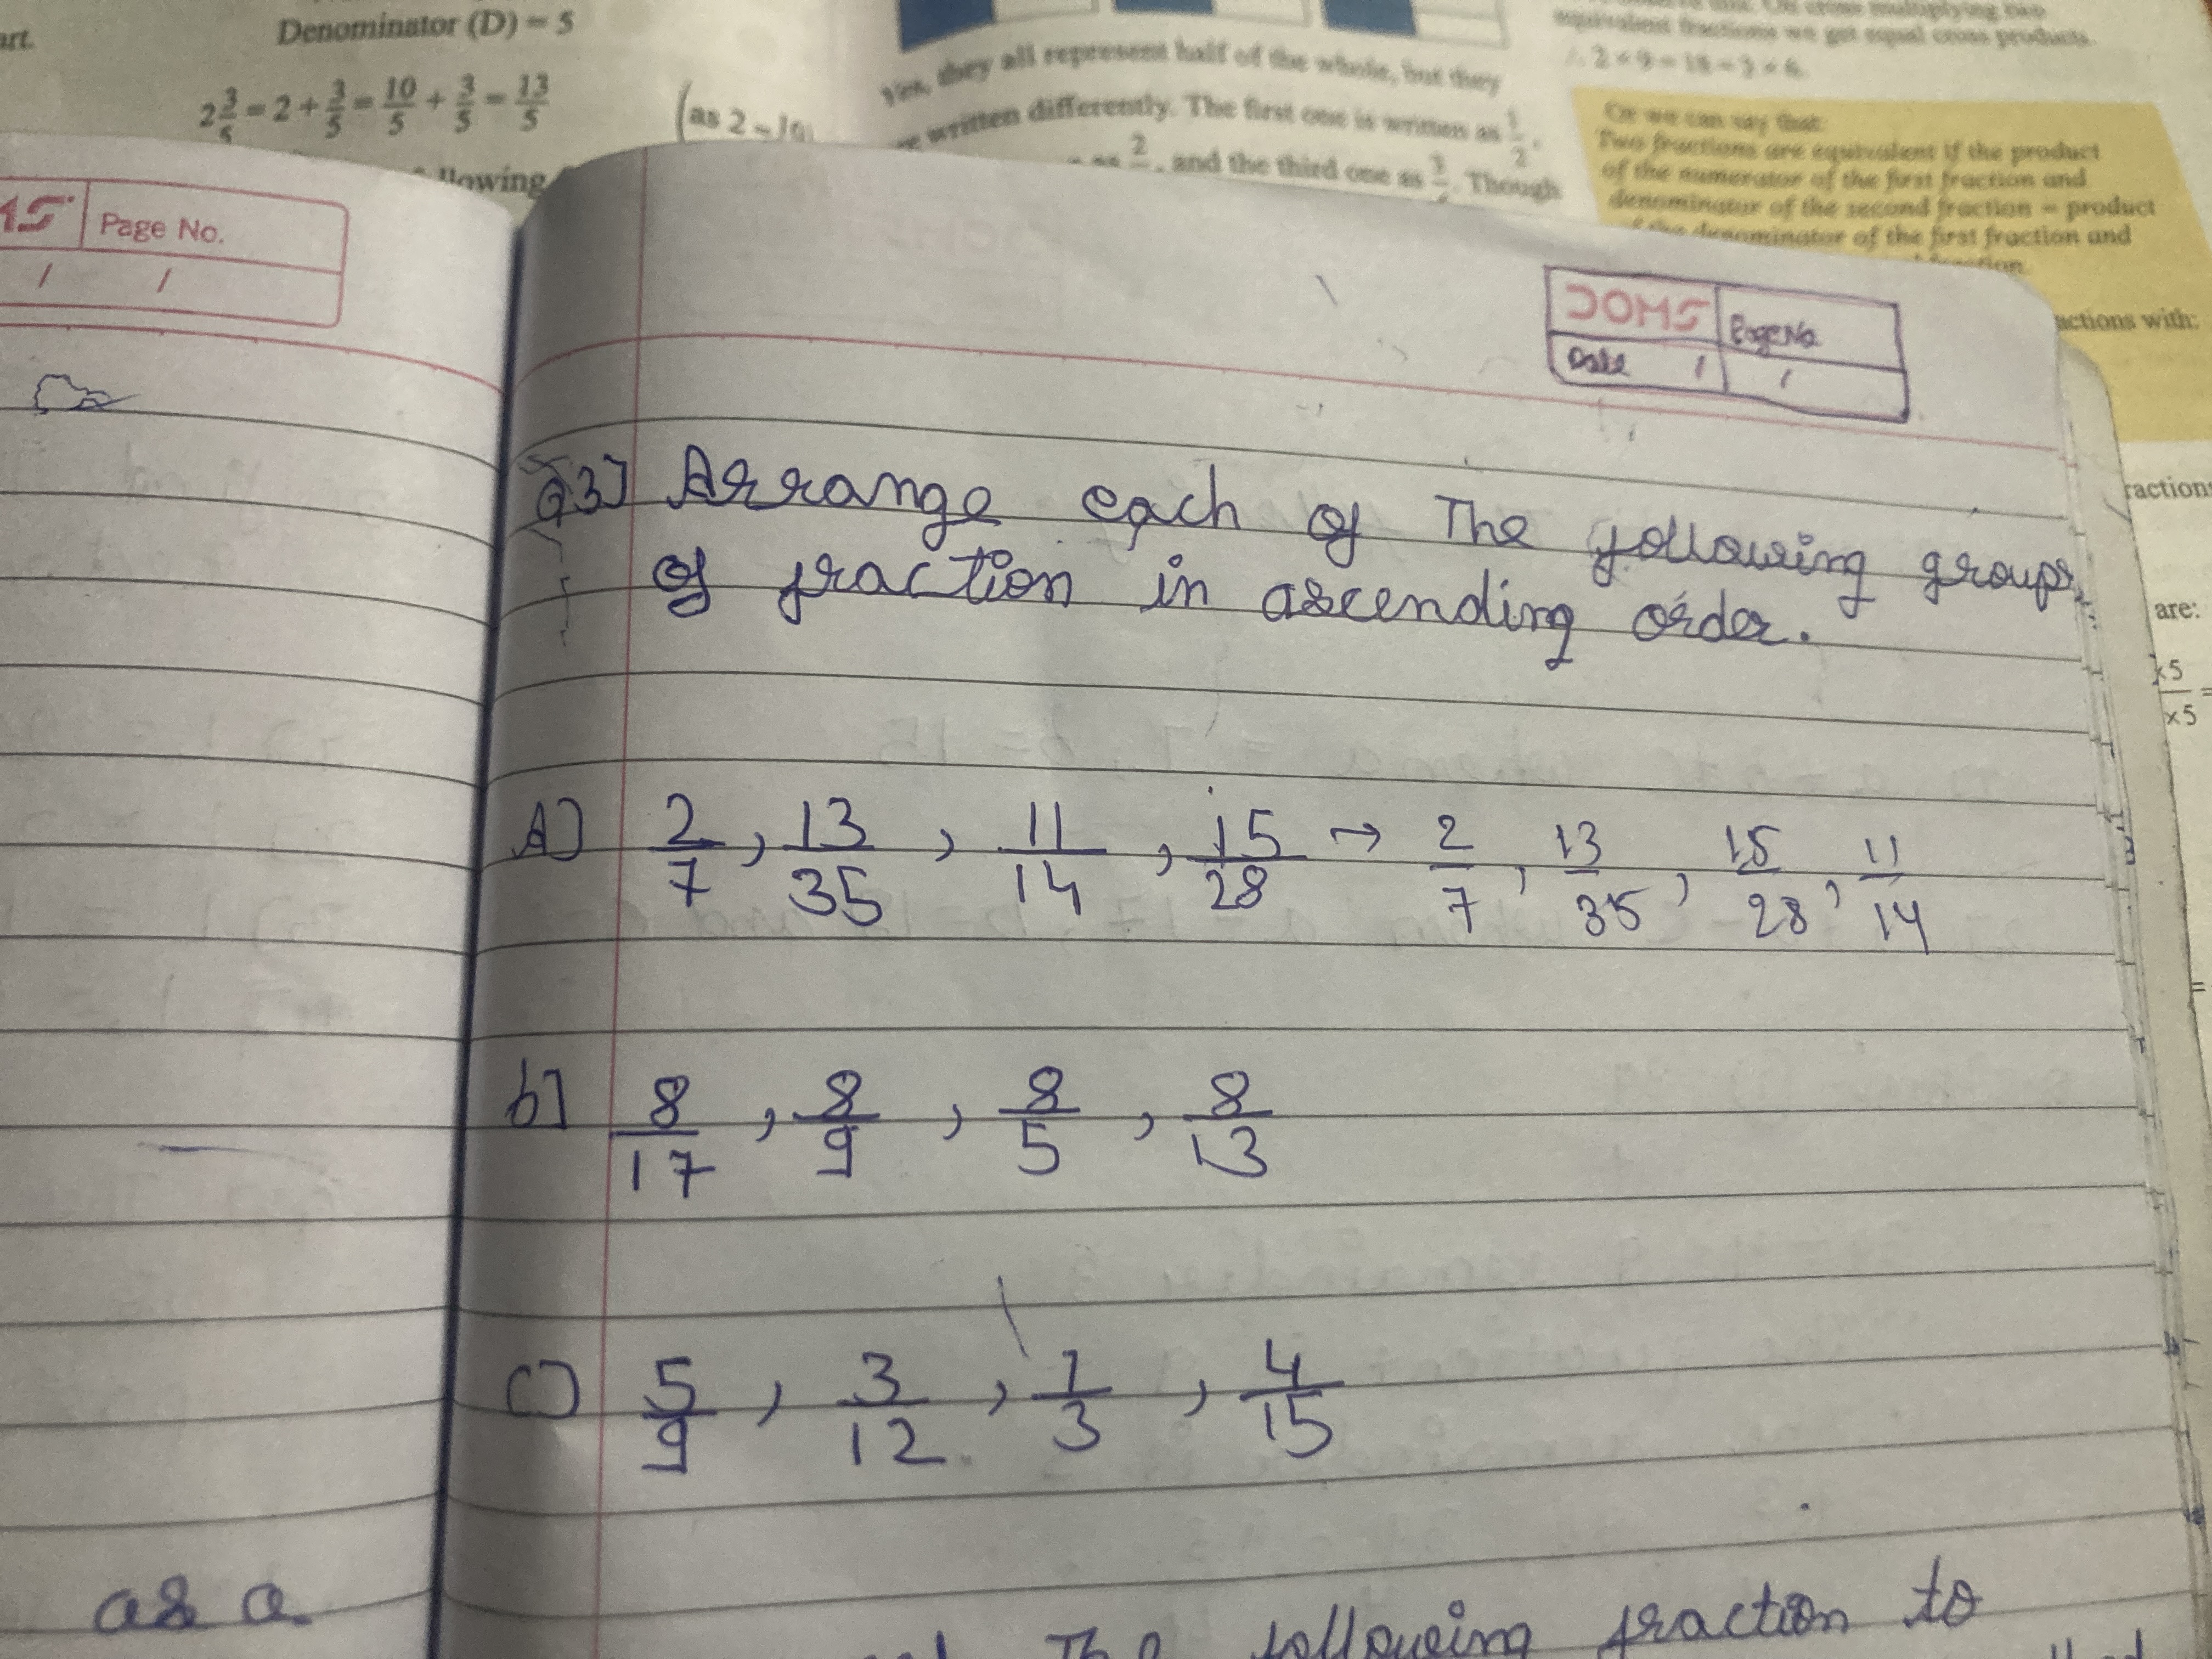 art.
Denominator (D) = 5
2 3/5 = 2 + 3/5 = 10/5 + 3/5 = 13/5
(as 2 = 10
llowing
Yes, they all represent half of the whole, but they
written differently. The first one is written as 1/2,
as 2/, and the third one as 3/. Though
On cross multiplying two
equivalent fractions we get equal cross products.
∴ 2 × 9 = 18 = 3 × 6
Or we can say that:
Two fractions are equivalent if the product
of the numerator of the first fraction and
denominator of the second fraction = product
of the denominator of the first fraction and
fraction.
actions with:
ractions
are:
×5
×5
=
=
MS Page No.
/ /
DOMS Page No
Date / /
Q3] Arrange each of The following groups
of fraction in ascending order.
A] 2/7, 13/35, 11/14, 15/28 → 2/7, 13/35, 15/28, 11/14
b] 8/17, 8/9, 8/5, 8/13
C] 5/9, 3/12, 1/3, 4/15
as a
The following fraction to